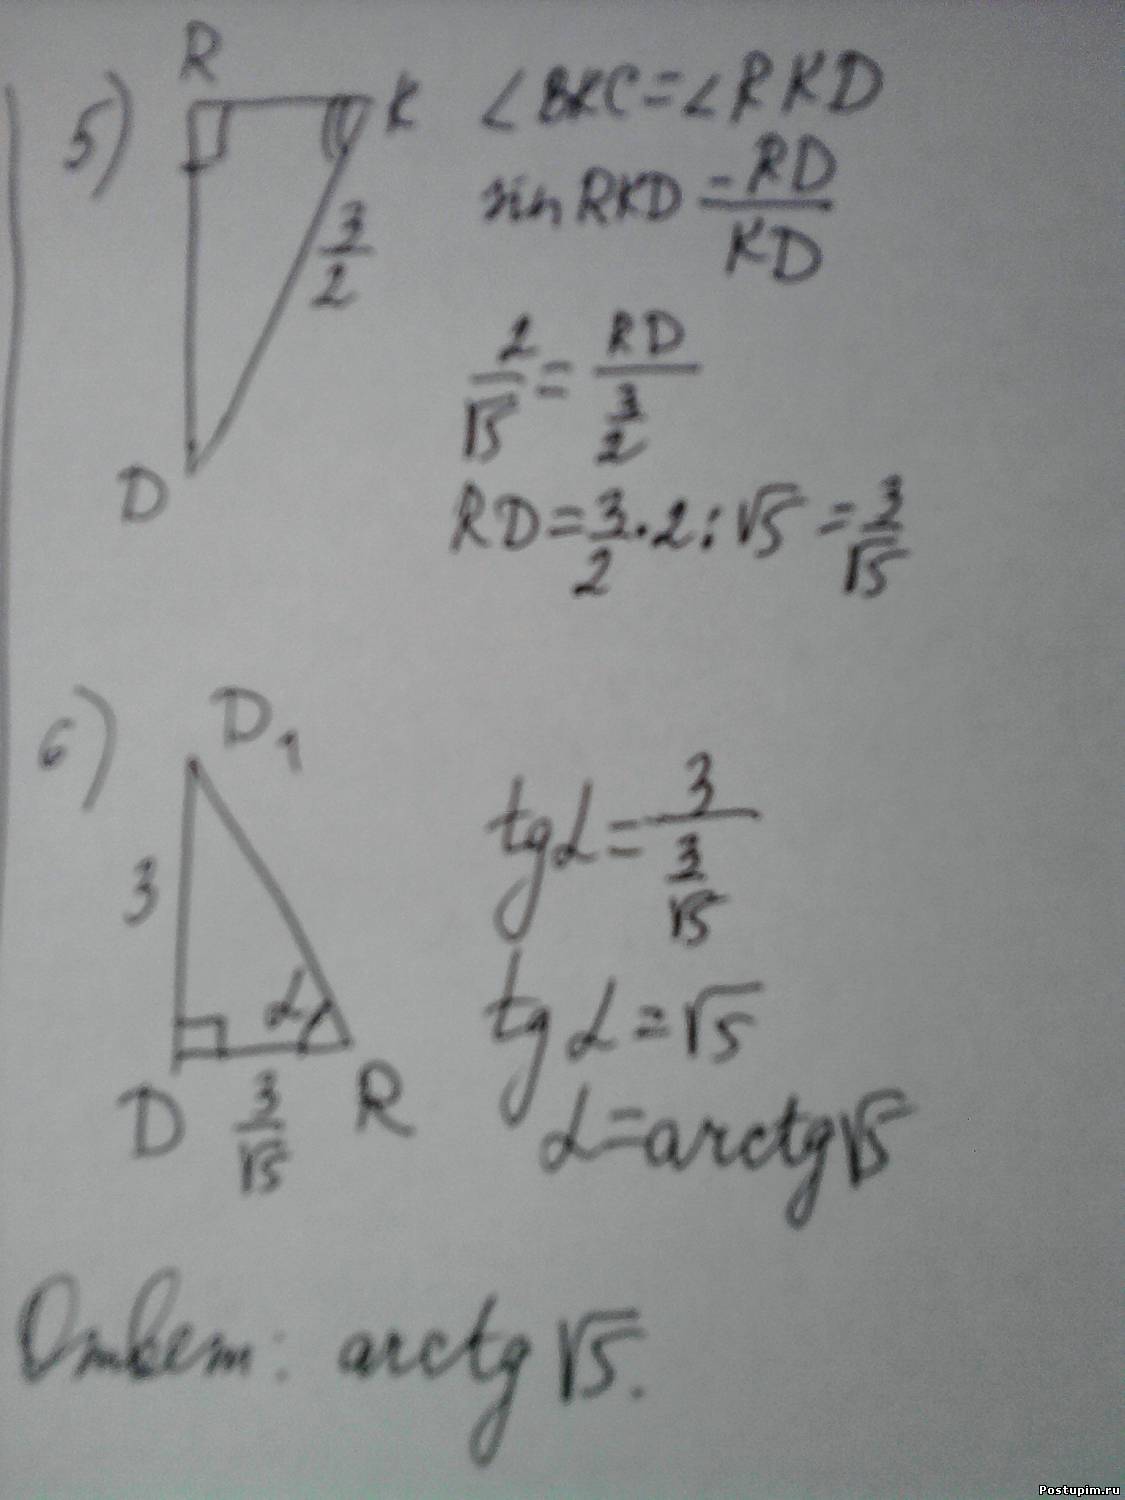 5)
R
K
3/2
D
∠BKC=∠RKD
sin RKD = RD/KD
2/√5 = RD/(3/2)
RD = 3/2 · 2 : √5 = 3/√5
6)
D₁
3
α
D
3/√5
R
tg α = 3/(3/√5)
tg α = √5
α = arctg √5
Ответ: arctg √5.
Postupim.ru